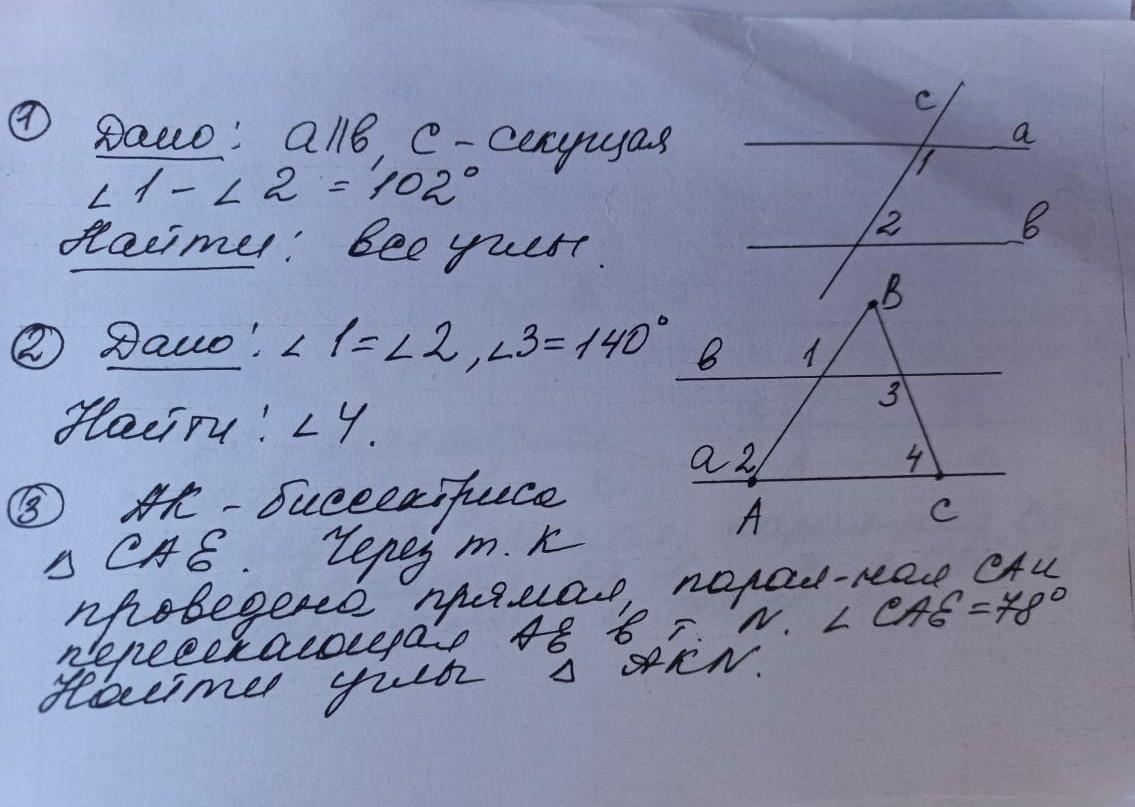 ① Дано: a||в, с - секущая
∠1 - ∠2 = 102°
Найти: все углы.
с
a
1
2
в
② Дано: ∠1=∠2, ∠3=140°
Найти: ∠4.
B
в
1
3
a
2
4
A
C
③ AK - биссектриса
△ CAE. Через т. K
проведена прямая, парал-ная CA и
пересекающая AE в т. N. ∠CAE=78°
Найти углы △ AKN.